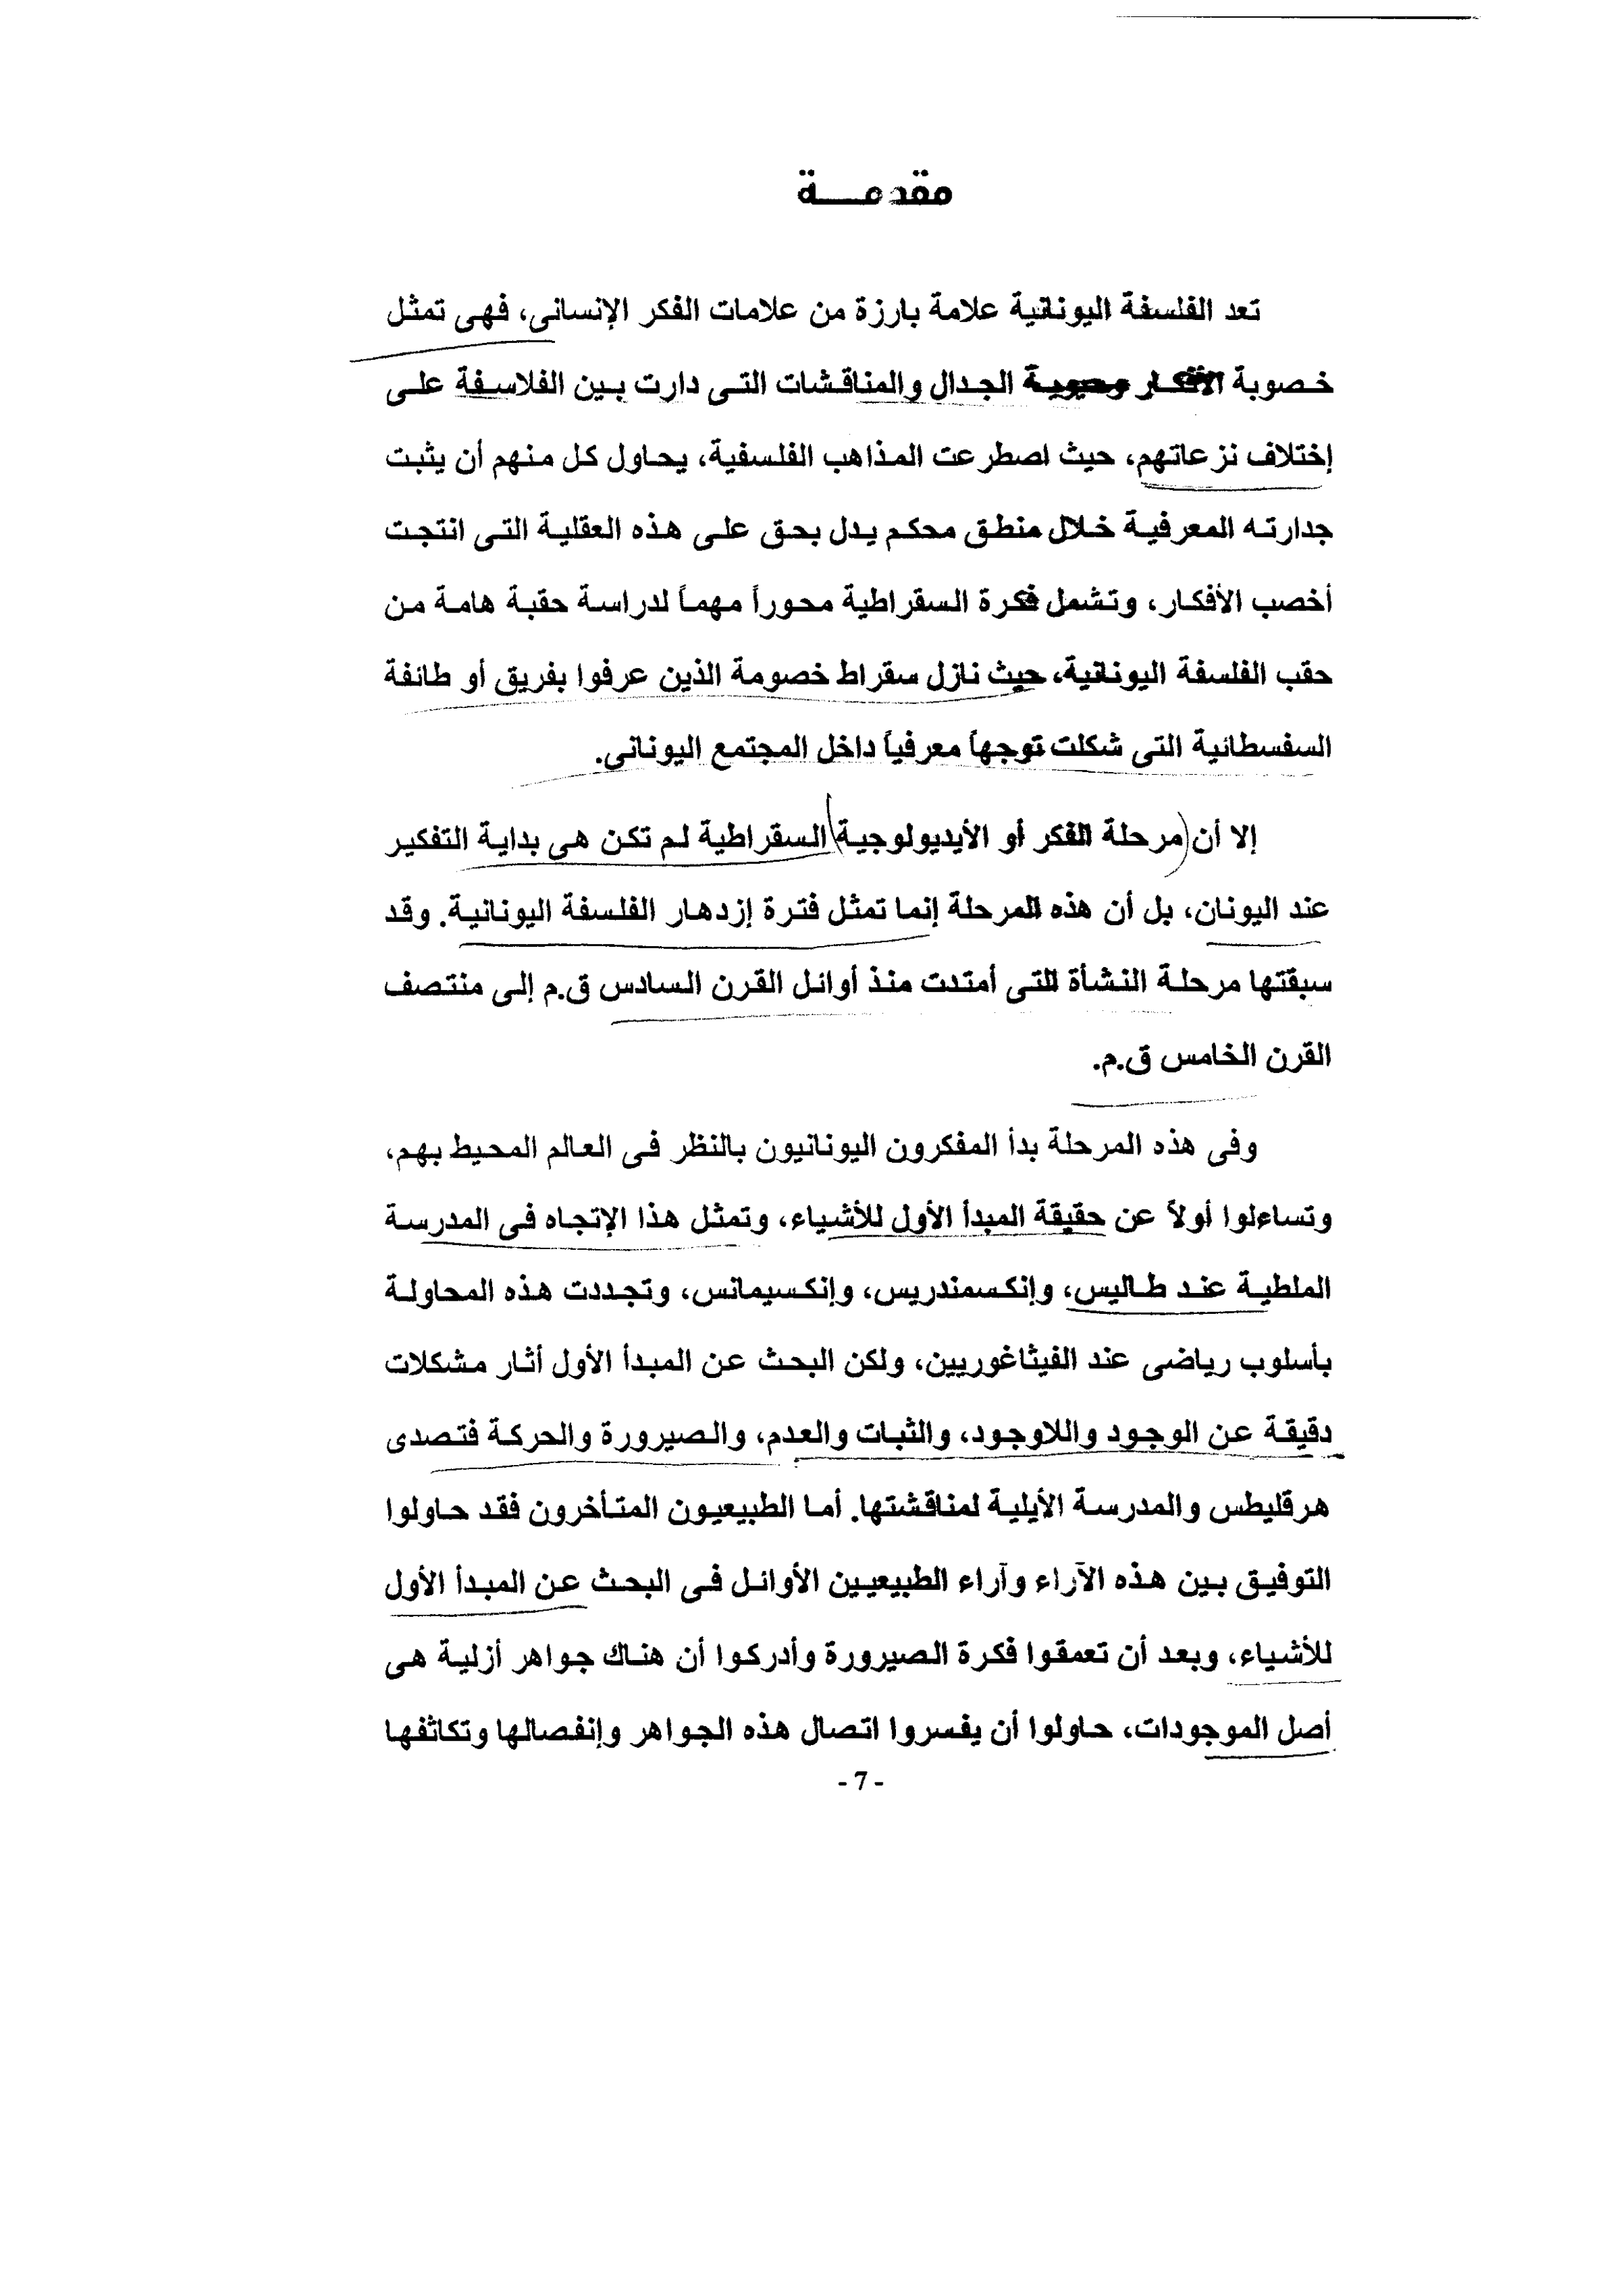 مقدمـــة
تعد الفلسفة اليونانية علامة بارزة من علامات الفكر الإنسانى، فهى تمثل
خصوبة الأفكار وحيوية الجدال والمناقشات التى دارت بين الفلاسفة على
إختلاف نزعاتهم، حيث اصطرعت المذاهب الفلسفية، يحاول كل منهم أن يثبت
جدارته المعرفية خلال منطق محكم يدل بحق على هذه العقلية التى انتجت
أخصب الأفكار، وتشمل فكرة السقراطية محوراً مهماً لدراسة حقبة هامة من
حقب الفلسفة اليونانية، حيث نازل سقراط خصومة الذين عرفوا بفريق أو طائفة
السفسطائية التى شكلت توجهاً معرفياً داخل المجتمع اليونانى.
إلا أن (مرحلة الفكر أو الأيديولوجية) السقراطية لم تكن هى بداية التفكير
عند اليونان، بل أن هذه المرحلة إنما تمثل فترة إزدهار الفلسفة اليونانية. وقد
سبقتها مرحلة النشأة التى أمتدت منذ أوائل القرن السادس ق.م إلى منتصف
القرن الخامس ق.م.
وفى هذه المرحلة بدأ المفكرون اليونانيون بالنظر فى العالم المحيط بهم،
وتساءلوا أولاً عن حقيقة المبدأ الأول للأشياء، وتمثل هذا الإتجاه فى المدرسة
الملطية عند طاليس، وإنكسمندريس، وإنكسيمانس، وتجددت هذه المحاولة
بأسلوب رياضى عند الفيثاغوريين، ولكن البحث عن المبدأ الأول أثار مشكلات
دقيقة عن الوجود واللاوجود، والثبات والعدم، والصيرورة والحركة فتصدى
هرقليطس والمدرسة الأيلية لمناقشتها. أما الطبيعيون المتأخرون فقد حاولوا
التوفيق بين هذه الآراء وآراء الطبيعيين الأوائل فى البحث عن المبدأ الأول
للأشياء، وبعد أن تعمقوا فكرة الصيرورة وأدركوا أن هناك جواهر أزلية هى
أصل الموجودات، حاولوا أن يفسروا اتصال هذه الجواهر وإنفصالها وتكاثفها
- 7 -